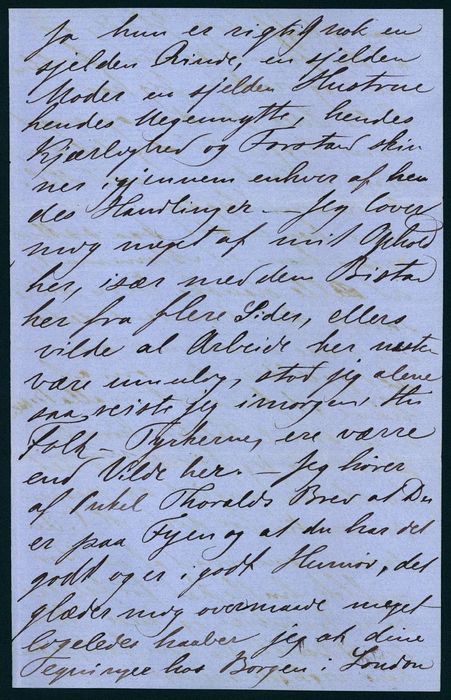 Ja hun er rigtig nok en
sjelden Qvinde, en sjelden
Moder en sjelden Hustrue
hendes Uegennytte, hendes
Kjærlighed og Forstand skin
ner igjennem enhver af hen
des Handlinger. – Jeg lover
mig meget af mit Ophold
her, især med den Bistand
her fra flere Sider, ellers
vilde al Arbeide her næsten
være umulig, stod jeg alene
saa reiste jeg imorgen, thi
Folk – Tyrkerne, ere værre
end Vilde her. – Jeg hører
af Onkel Thoralds Brev at Du
er paa Fyen og at du har det
godt og er i godt Humør, det
glæder mig overmaade meget
ligeledes haaber jeg at dine
Tegninger hos Borgen i London